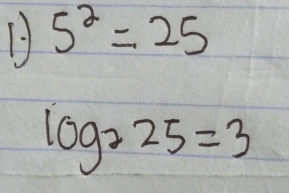 1.) 5² = 25
log₂ 25 = 3